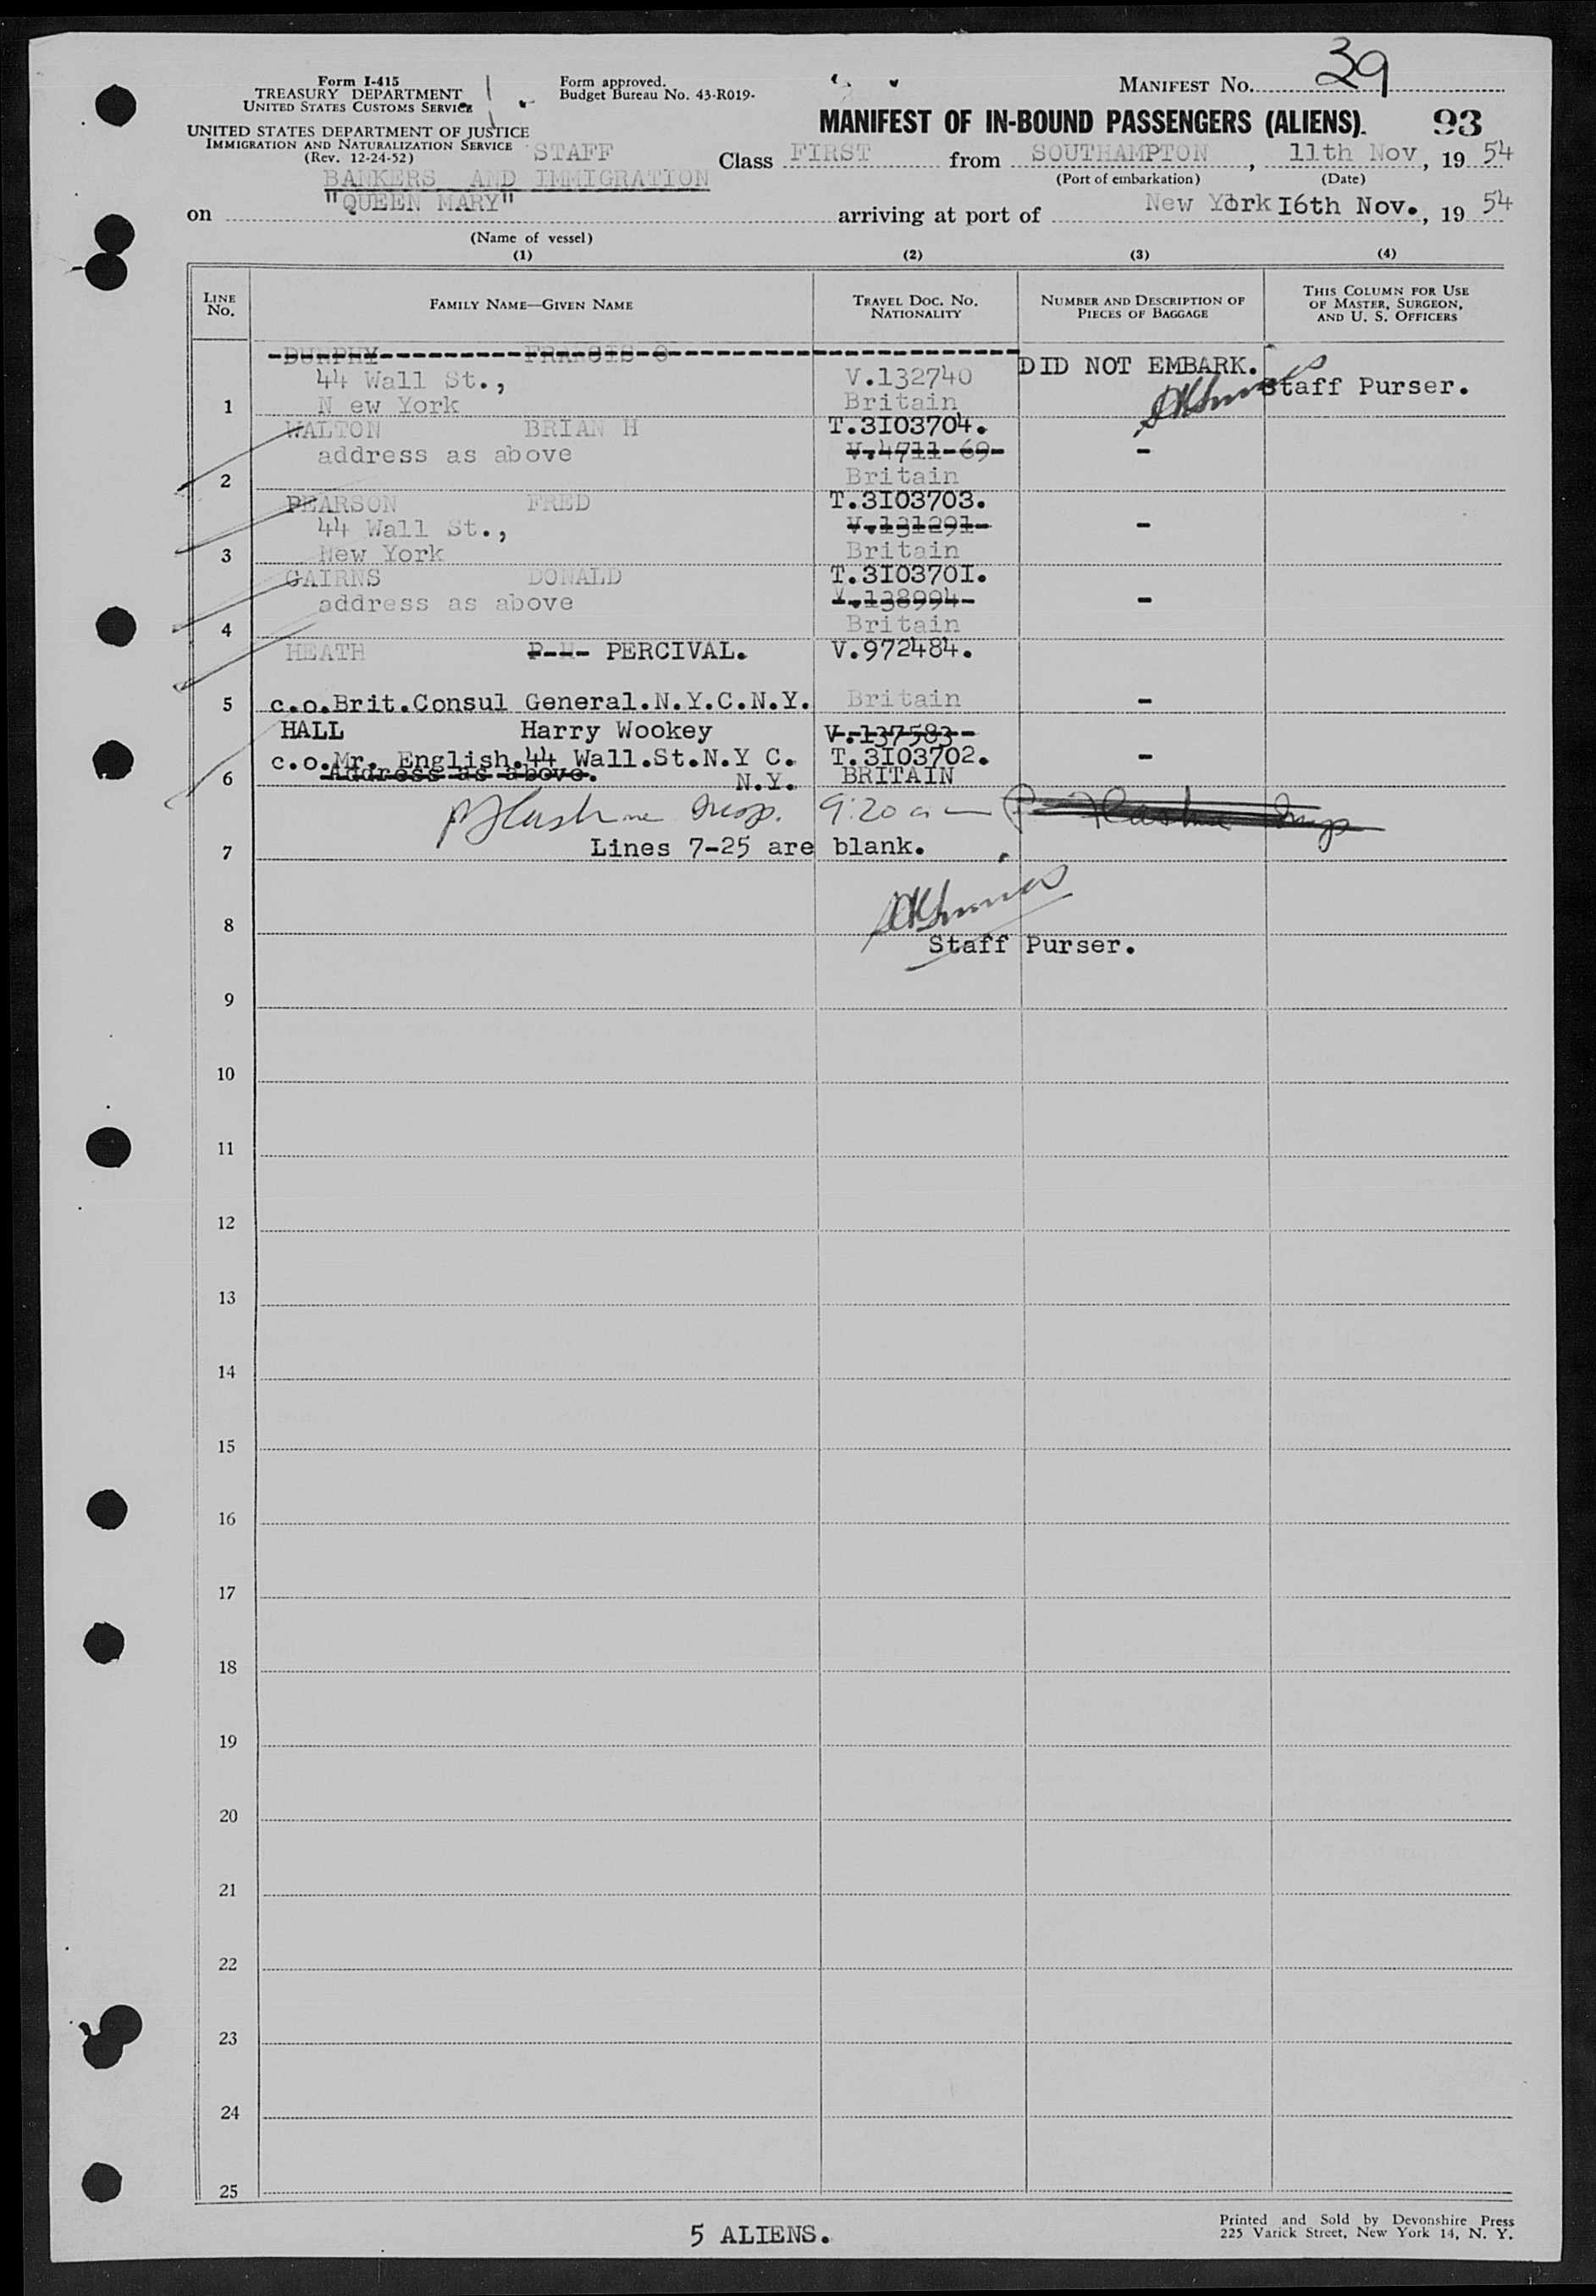 Form I-415
TREASURY DEPARTMENT
UNITED STATES CUSTOMS SERVICE
Form approved.
Budget Bureau No. 43-R019-
MANIFEST NO. 39
UNITED STATES DEPARTMENT OF JUSTICE
IMMIGRATION AND NATURALIZATION SERVICE
(Rev. 12-24-52)
MANIFEST OF IN-BOUND PASSENGERS (ALIENS) 93
STAFF Class FIRST from SOUTHAMPTON, 11th Nov, 19 54
(Port of embarkation) (Date)
BANKERS AND IMMIGRATION
on "QUEEN MARY" arriving at port of New York I6th Nov., 19 54
(Name of vessel)
(1) (2) (3) (4)
LINE No. FAMILY NAME—GIVEN NAME TRAVEL DOC. NO. NATIONALITY NUMBER AND DESCRIPTION OF PIECES OF BAGGAGE THIS COLUMN FOR USE OF MASTER, SURGEON, AND U. S. OFFICERS
DUNPHY FRANCIS O
44 Wall St., V.132740 DID NOT EMBARK. Staff Purser.
1 N ew York Britain
WALTON BRIAN H T.3I03704.
address as above V.4711-69- -
2 Britain
PEARSON FRED T.3I03703.
44 Wall St., V.131291- -
3 New York Britain
GAIRNS DONALD T.3I0370I.
address as above V.138994- -
4 Britain
HEATH P--- PERCIVAL. V.972484.
5 c.o.Brit.Consul General.N.Y.C.N.Y. Britain -
HALL Harry Wookey V.137583-
c.o.Mr. English.44 Wall.St.N.Y C. T.3I03702. -
6 Address as above. N.Y. BRITAIN
Insp. 9:20 a m
7 Lines 7-25 are blank.
8
Staff Purser.
9
10
11
12
13
14
15
16
17
18
19
20
21
22
23
24
25
5 ALIENS.
Printed and Sold by Devonshire Press
225 Varick Street, New York 14, N. Y.